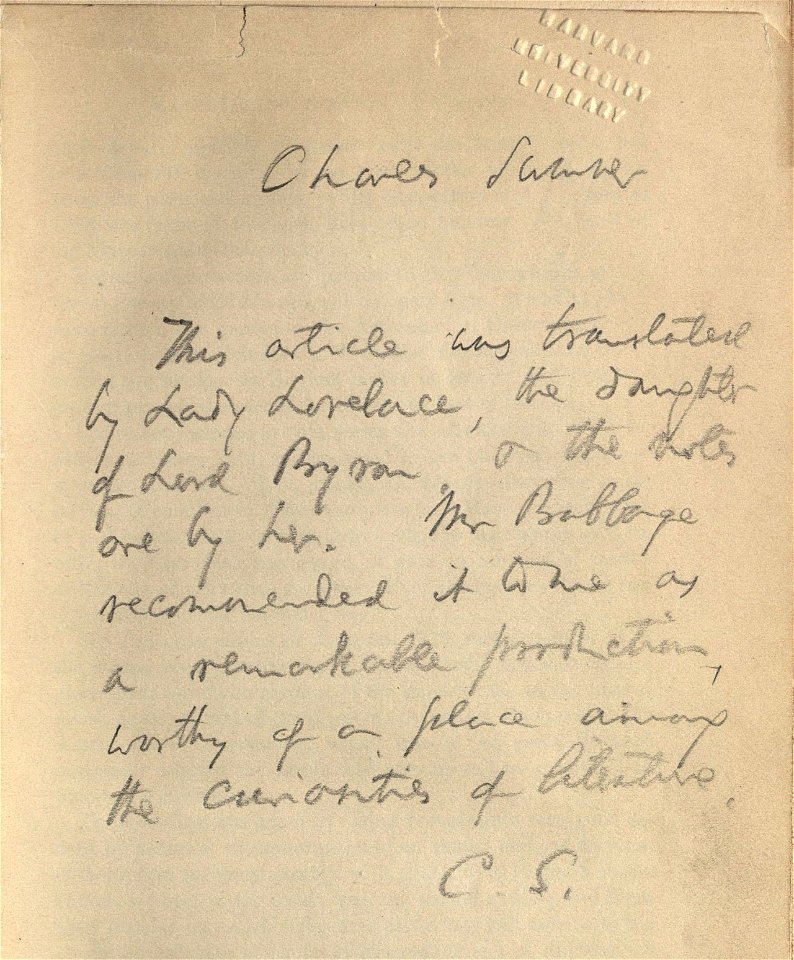 HARVARD
UNIVERSITY
LIBRARY
Charles Sumner
This article was translated
by Lady Lovelace, the daughter
of Lord Byron, & the notes
are by her. Mr Babbage
recommended it to me as
a remarkable production,
worthy of a place among
the curiosities of literature.
C. S.